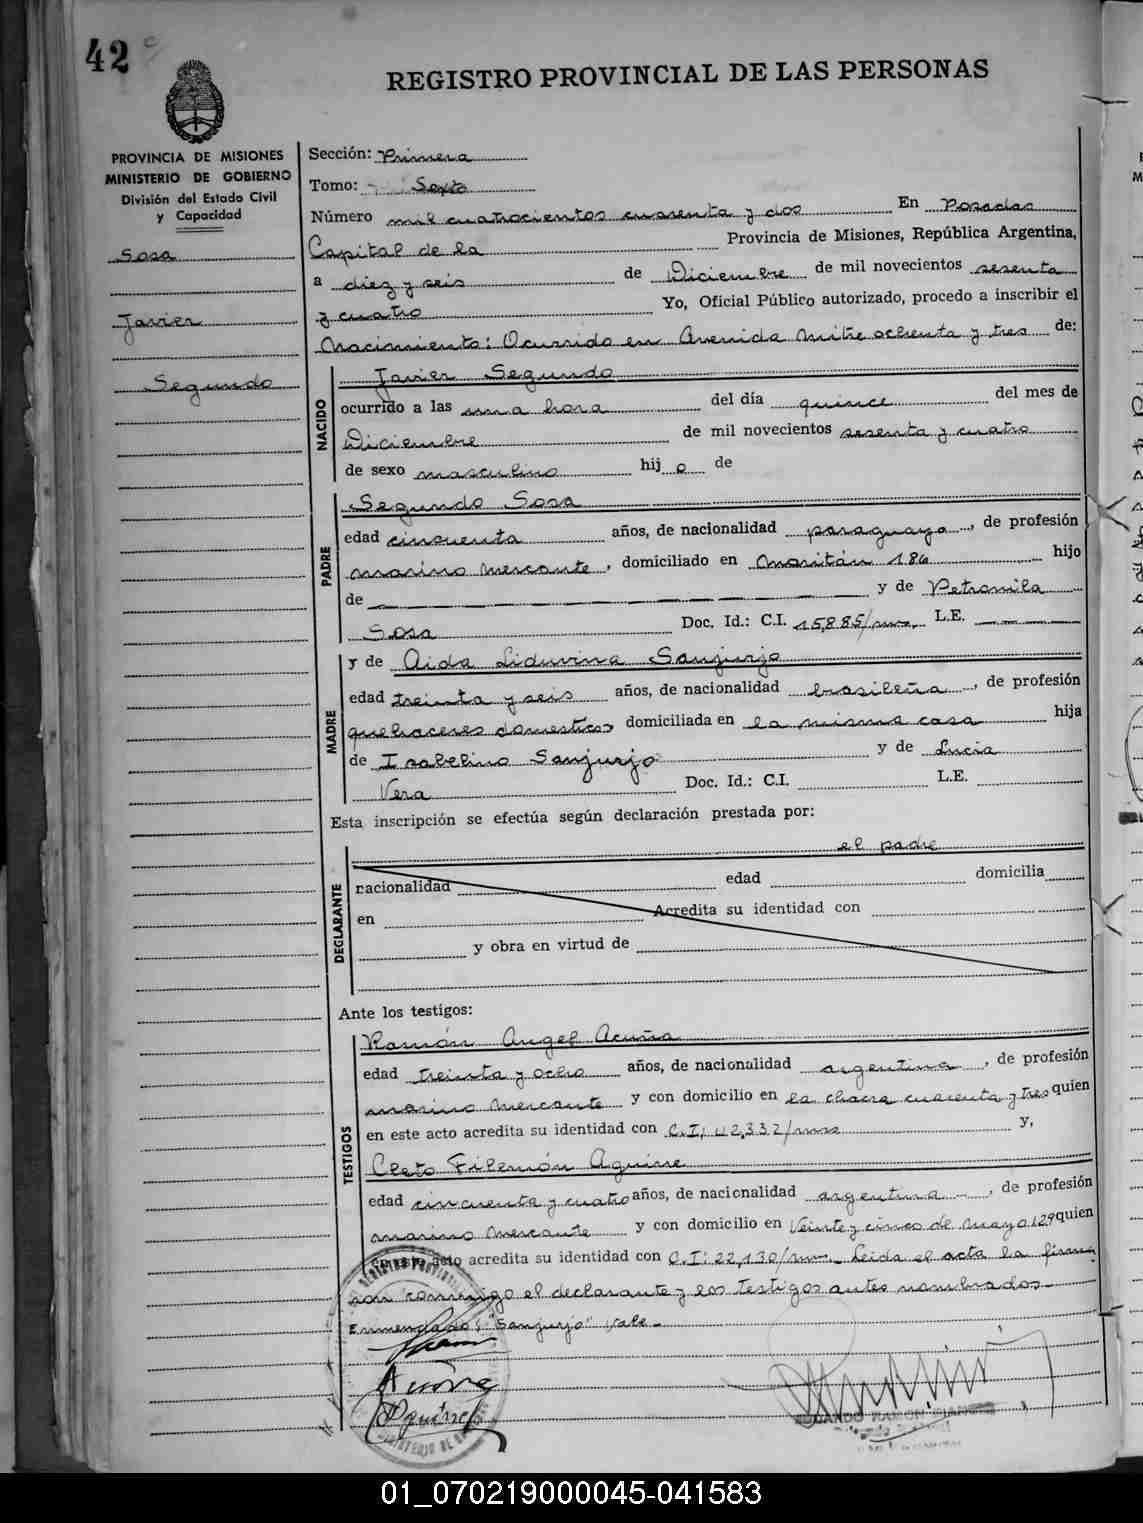 42
REGISTRO PROVINCIAL DE LAS PERSONAS
PROVINCIA DE MISIONES
MINISTERIO DE GOBIERNO
División del Estado Civil
y Capacidad
Sosa
Javier
Segundo
Sección: Primera
Tomo: Sexto
Número mil cuatrocientos cuarenta y dos En Posadas
Capital de la Provincia de Misiones, República Argentina,
a diez y seis de Diciembre de mil novecientos sesenta
y cuatro Yo, Oficial Público autorizado, procedo a inscribir el
Nacimiento: Ocurrido en Avenida Mitre ochenta y tres de:
NACIDO
Javier Segundo
ocurrido a las una hora del día quince del mes de
Diciembre de mil novecientos sesenta y cuatro
de sexo masculino hijo de
PADRE
Segundo Sosa
edad cincuenta años, de nacionalidad paraguayo, de profesión
marino mercante, domiciliado en Maritán 186 hijo
de — y de Petronila
Sosa Doc. Id.: C.I. 15,885/ L.E. — — — —
MADRE
y de Aida Liduvina Sanjurjo
edad treinta y seis años, de nacionalidad brasileña, de profesión
quehaceres domesticos domiciliada en la misma casa hija
de Isabelino Sanjurjo y de Lucia
Vera Doc. Id.: C.I. L.E.
Esta inscripción se efectúa según declaración prestada por:
DECLARANTE
el padre
nacionalidad edad domicilia
en Acredita su identidad con
y obra en virtud de
Ante los testigos:
TESTIGOS
Ramón Angel Acuña
edad treinta y ocho años, de nacionalidad argentina, de profesión
marino mercante y con domicilio en la chacra cuarenta y tres quien
en este acto acredita su identidad con C.I: 42,332/ y,
Cleto Filemón Aguirre
edad cincuenta y cuatro años, de nacionalidad argentina, de profesión
marino mercante y con domicilio en Veinte y cinco de mayo 129 quien
en este acto acredita su identidad con C.I: 22,130/ Leida el acta la firma
ron conmigo el declarante y los testigos antes nombrados.-
Enmendado: "Sanjurjo" Vale.-
Acuña
Aguirre
01_070219000045-041583